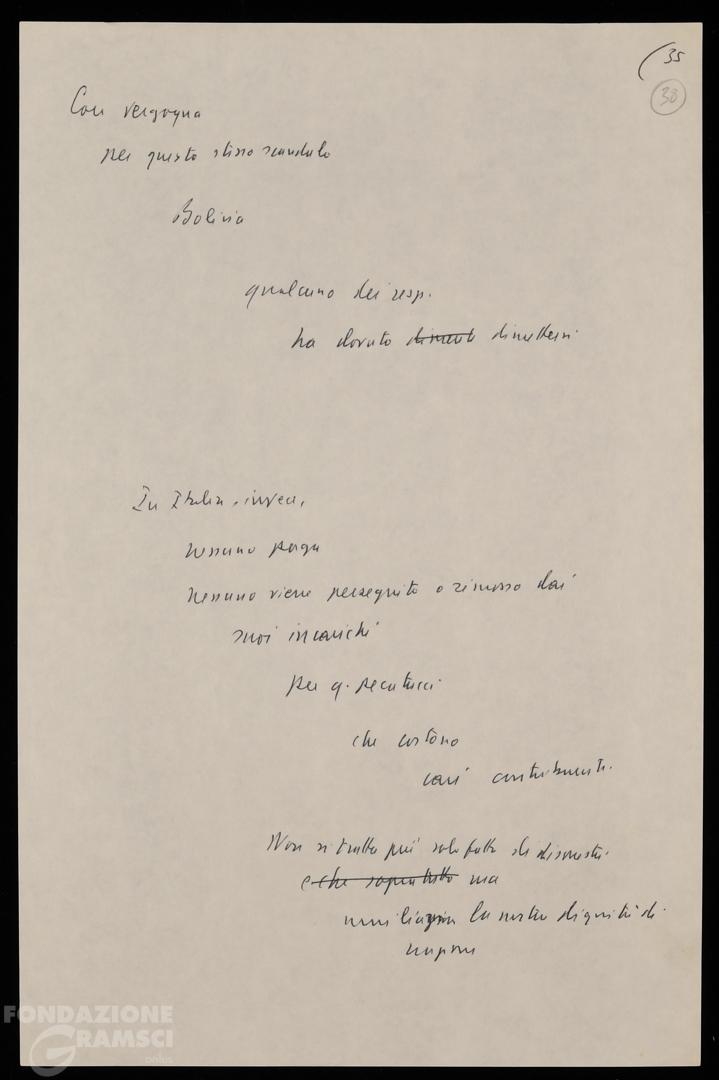 (35
38
Con vergogna
per questo stesso scandalo
Bolivia
qualcuno dei resp.
ha dovuto dimettersi
In Italia, invece,
nessuno paga
nessuno viene perseguito o rimosso dai
suoi incarichi
per q. pecatucci
che costano
cari contribuenti.
Non si tratta più solo fatto di disonestà
e che sopratutto ma
la nostra dignità di
nazione
FONDAZIONE
GRAMSCI
onlus